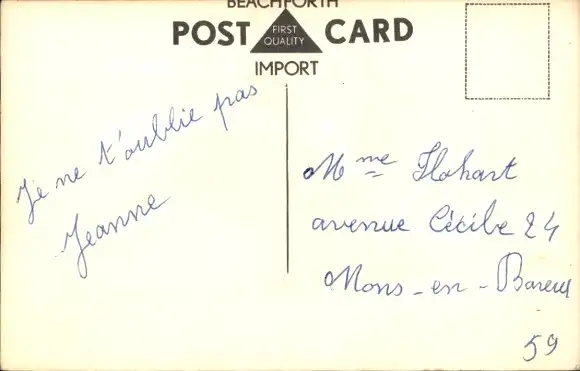 BEACHFORTH
POST CARD
FIRST
QUALITY
IMPORT
Je ne t'oublie pas
Jeanne
Mme Flohart
avenue Cécile 24
Mons-en-Bareul
59